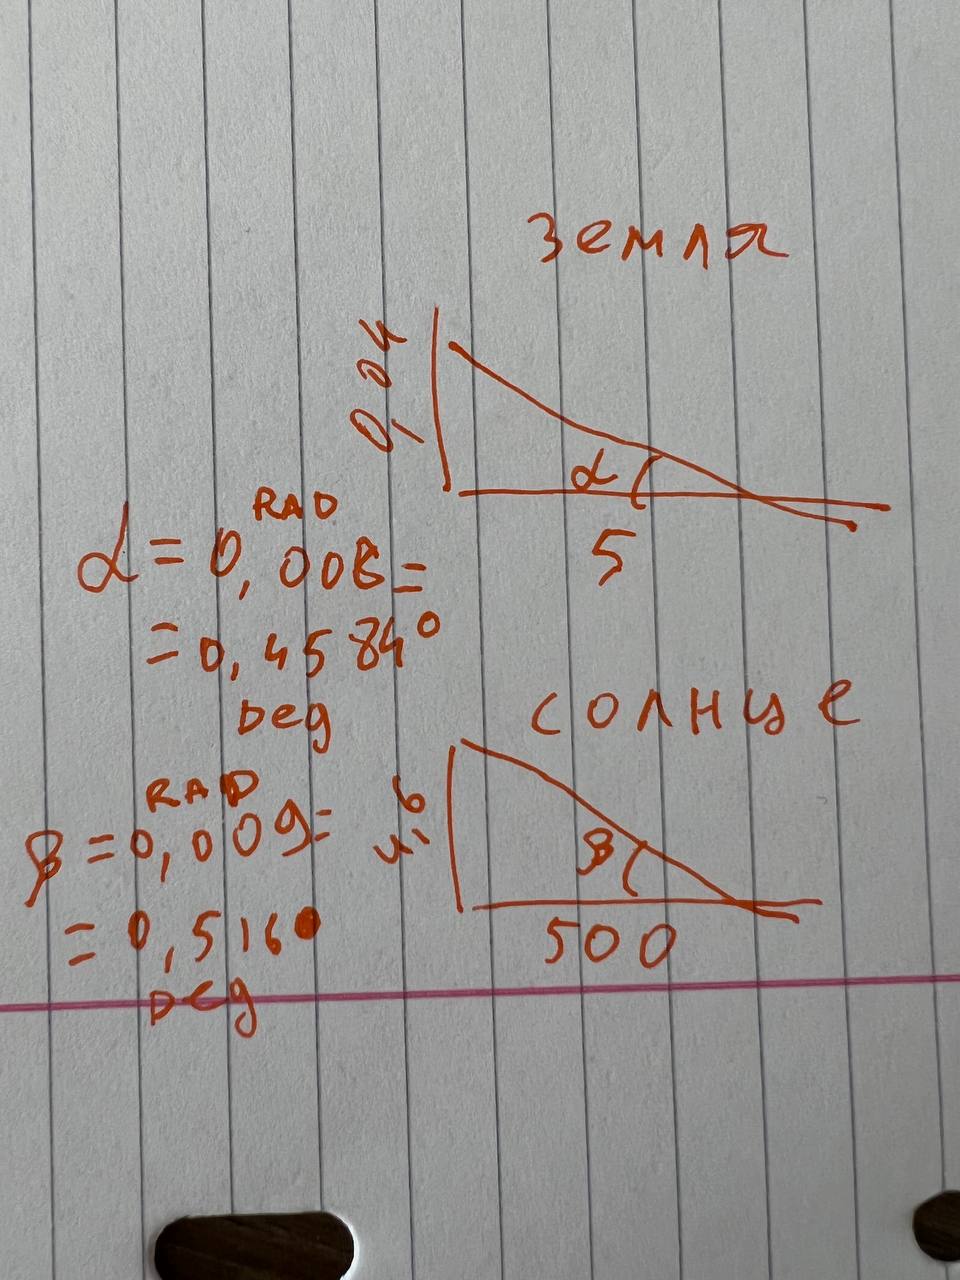 земля
0,04
α
5
RAD
α = 0,008 =
= 0,4584°
Deg
солнце
4,6
β
500
RAD
β = 0,009 =
= 0,516°
Deg